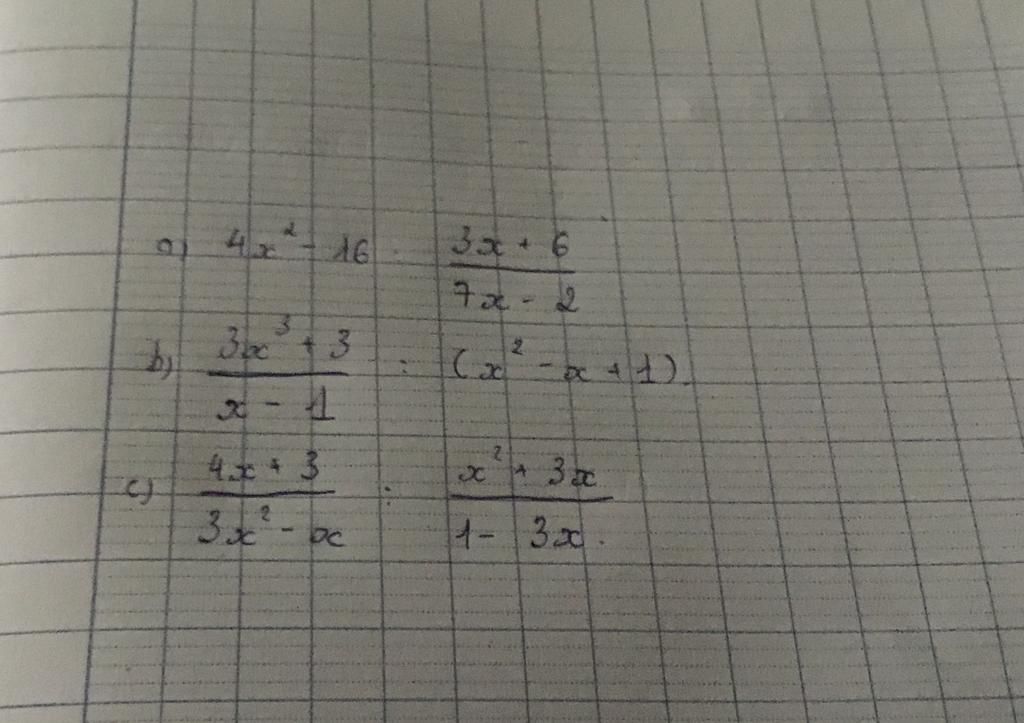 a) 4x² - 16 : (3x + 6)/(7x - 2)
b) (3x³ + 3)/(x - 1) : (x² - x + 1)
c) (4x + 3)/(3x² - x) : (x² + 3x)/(1 - 3x).